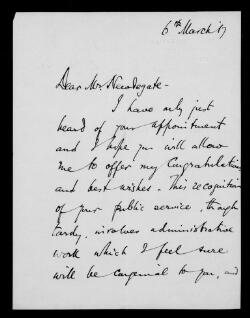 6th March '17
Dear Mr. Newdegate -
I have only just
heard of your appointment
and I hope you will allow
me to offer my Congratulations
and best wishes. This recognition
of your public service, though
tardy, involves administrative
work which I feel sure
will be congenial to you, and